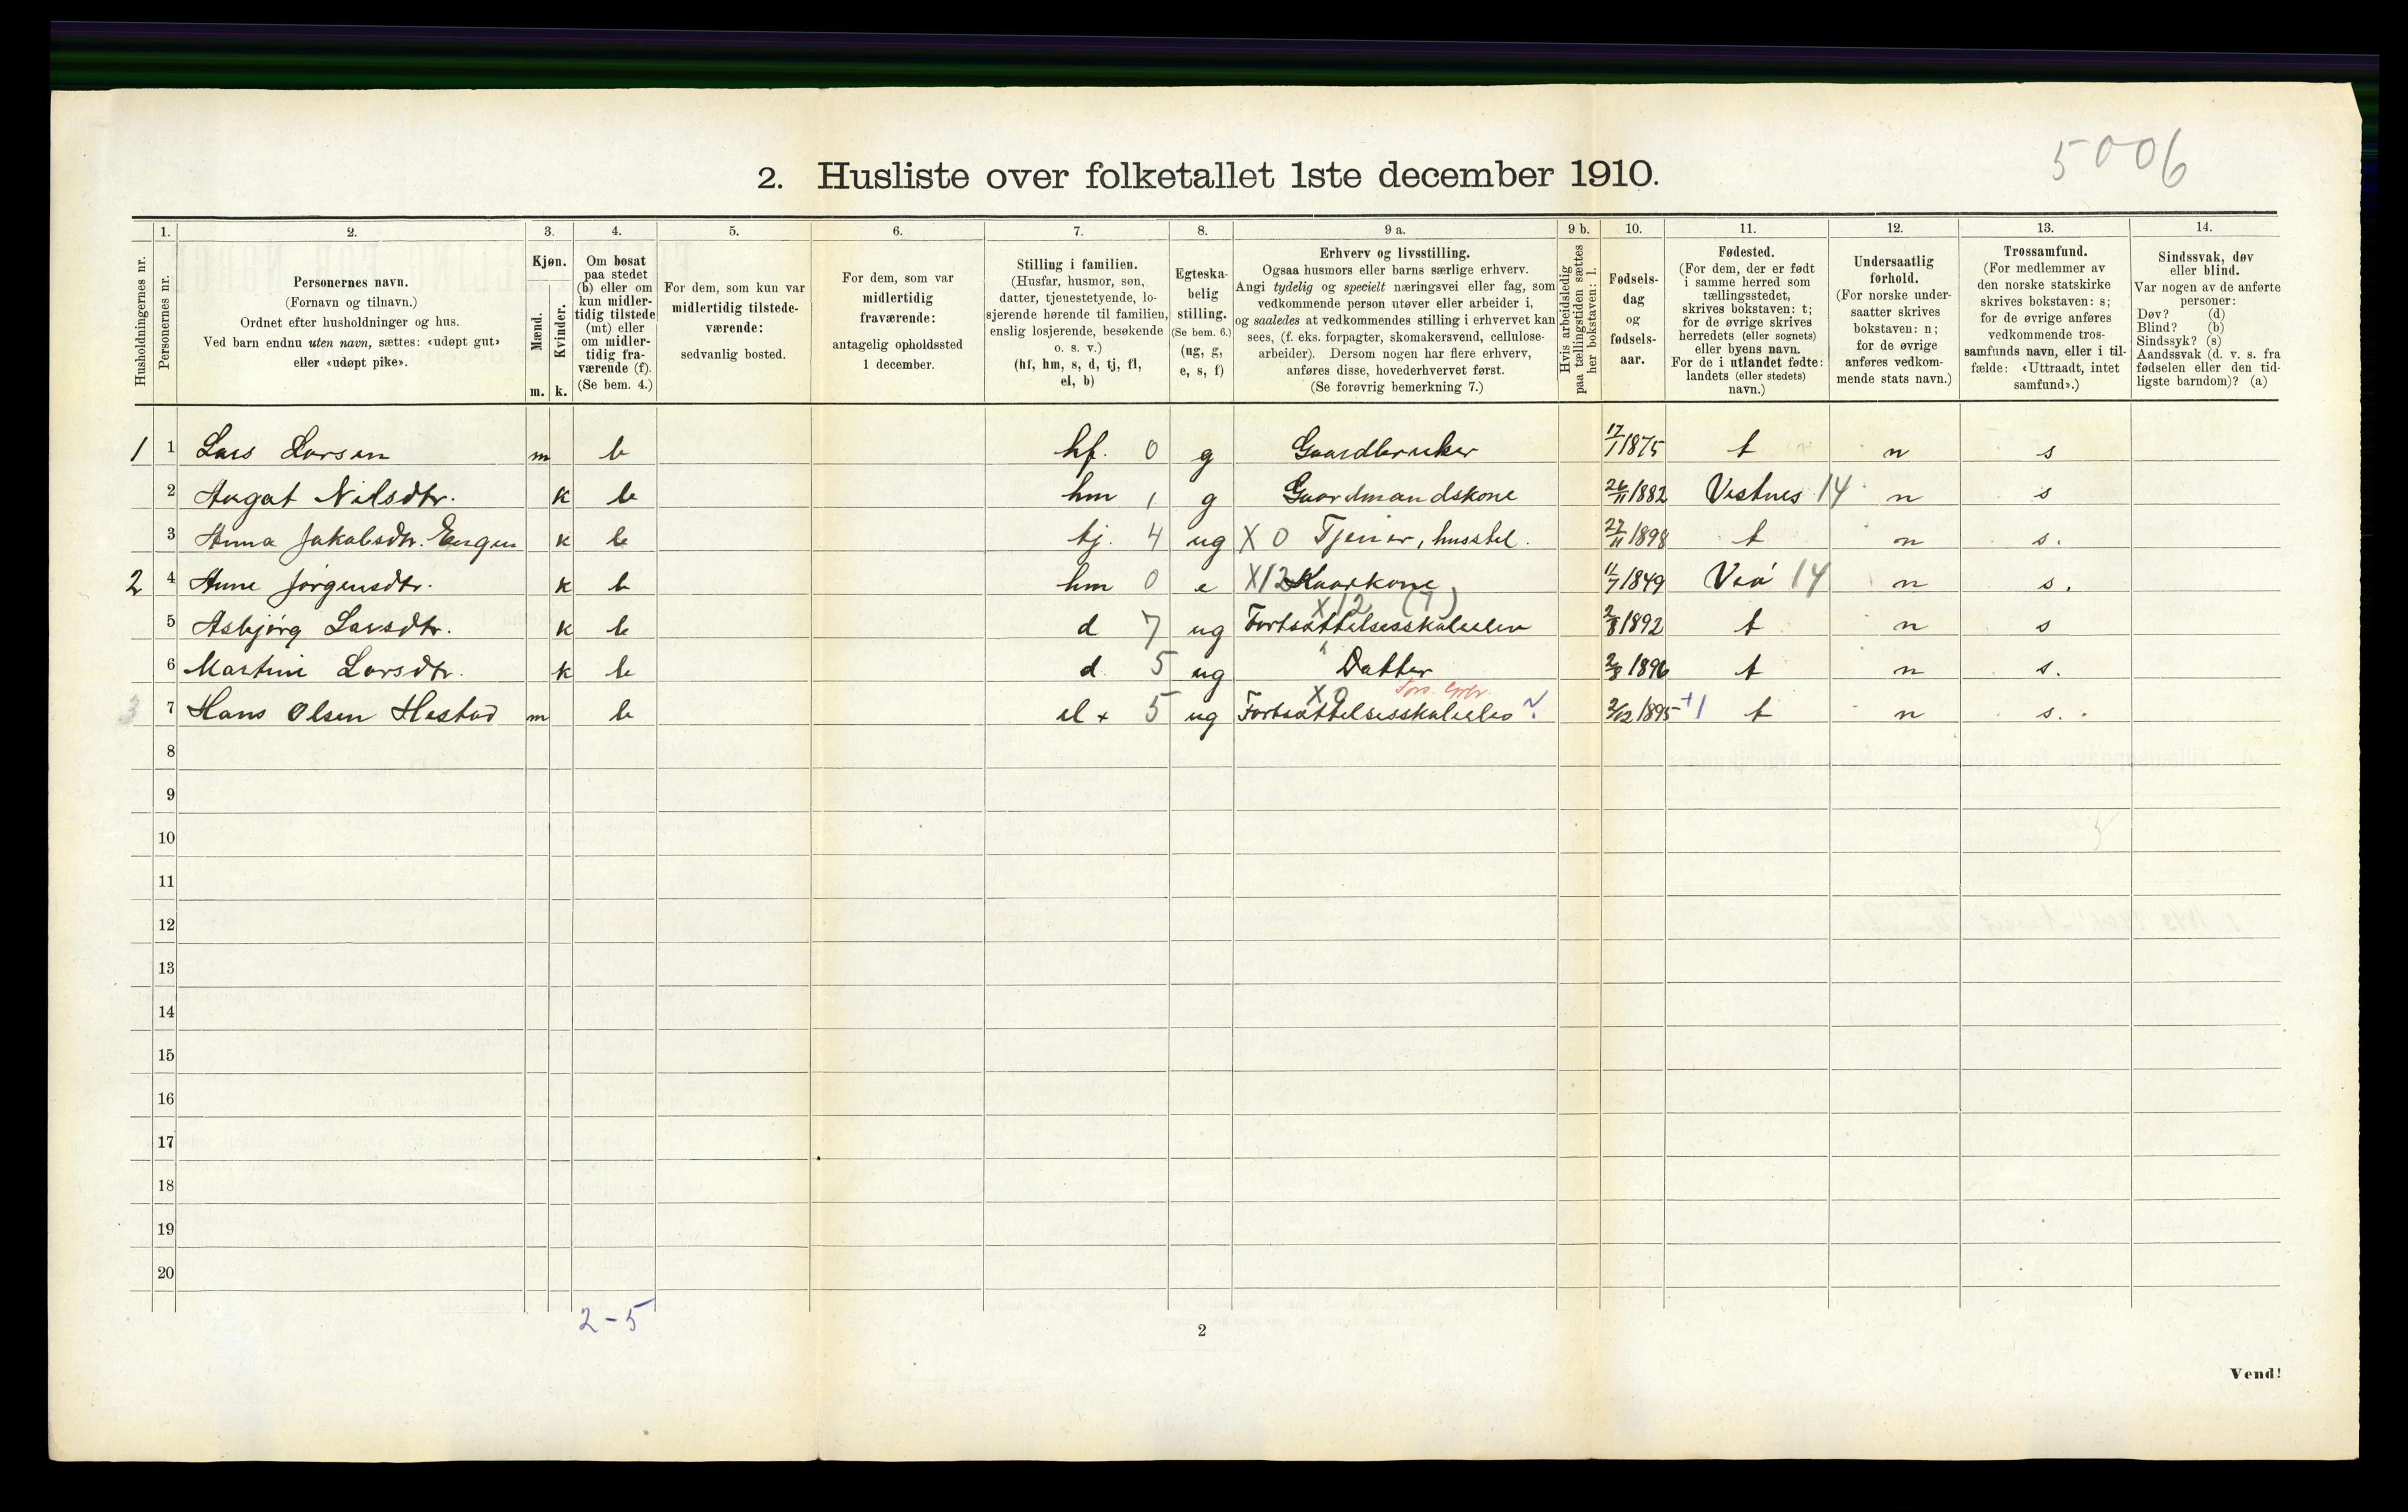 5006
2. Husliste over folketallet 1ste december 1910.
1. 2. 3. 4. 5. 6. 7. 8. 9 a. 9 b. 10. 11. 12. 13. 14.
Husholdningernes nr.
Personernes nr.
Personernes navn.
(Fornavn og tilnavn.)
Ordnet efter husholdninger og hus.
Ved barn endnu uten navn, sættes: «udøpt gut»
eller «udøpt pike».
Kjøn.
Mænd.
Kvinder.
m. k.
Om bosat
paa stedet
(b) eller om
kun midler-
tidig tilstede
(mt) eller
om midler-
tidig fra-
værende (f).
(Se bem. 4.)
For dem, som kun var
midlertidig tilstede-
værende:
sedvanlig bosted.
For dem, som var
midlertidig
fraværende:
antagelig opholdssted
1 december.
Stilling i familien.
(Husfar, husmor, søn,
datter, tjenestetyende, lo-
sjerende hørende til familien,
enslig losjerende, besøkende
o. s. v.)
(hf, hm, s, d, tj, fl,
el, b)
Egteska-
belig
stilling.
(Se bem. 6.)
(ug, g,
e, s, f)
Erhverv og livsstilling.
Ogsaa husmors eller barns særlige erhverv.
Angi tydelig og specielt næringsvei eller fag, som
vedkommende person utøver eller arbeider i,
og saaledes at vedkommendes stilling i erhvervet kan
sees, (f. eks. forpagter, skomakersvend, cellulose-
arbeider). Dersom nogen har flere erhverv,
anføres disse, hovederhvervet først.
(Se forøvrig bemerkning 7.)
Hvis arbeidsledig
paa tællingstiden sættes
her bokstaven: l.
Fødsels-
dag
og
fødsels-
aar.
Fødested.
(For dem, der er født
i samme herred som
tællingsstedet,
skrives bokstaven: t;
for de øvrige skrives
herredets (eller sognets)
eller byens navn.
For de i utlandet fødte:
landets (eller stedets)
navn.)
Undersaatlig
forhold.
(For norske under-
saatter skrives
bokstaven: n;
for de øvrige
anføres vedkom-
mende stats navn.)
Trossamfund.
(For medlemmer av
den norske statskirke
skrives bokstaven: s;
for de øvrige anføres
vedkommende tros-
samfunds navn, eller i til-
fælde: «Uttraadt, intet
samfund».)
Sindssvak, døv
eller blind.
Var nogen av de anførte
personer:
Døv? (d)
Blind? (b)
Sindssyk? (s)
Aandssvak (d. v. s. fra
fødselen eller den tid-
ligste barndom)? (a)
1 1 Lars Larsen m b hf. 0 g Gaardbruker 17/1 1875 t n s
2 Aagot Nilsdtr. k b hm 1 g Gaardmandskone 26/11 1882 Vestnes 14 n s
3 Anna Jakobsdtr. k b tj. 4 ug X 0 Tjener, husstel. 27/11 1898 t n s.
2 4 Anne Jørgensdtr. k b hm 0 e X12 Kaarkone 11/7 1849 14 n s.
X12 (7)
5 Asbjørg Larsdtr. k b d 7 ug Fortsættelsesskoleelev 2/8 1892 t n s
6 Martine Larsdtr. k b d. 5 ug Datter 2/8 1896 t n s.
X 0
3 7 Hans Olsen Hestad m b el x 5 ug Fortsættelsesskoleelev 2/12 1895 +1 t n s.
8
9
10
11
12
13
14
15
16
17
18
19
20
2-5
2
Vend!